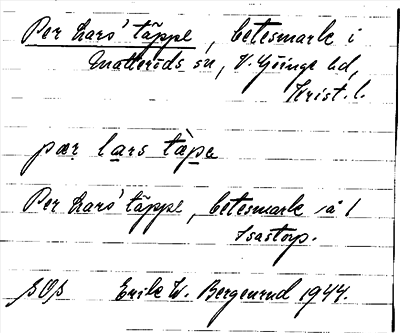 Per Lars' täppe, betesmark i
Matteröds sn, V. Göinge hd,
Krist. l.
pær lars tæpe
Per Lars' täppe, betesmark å 1
Isastorp.
Erik W. Bergenrud 1944.